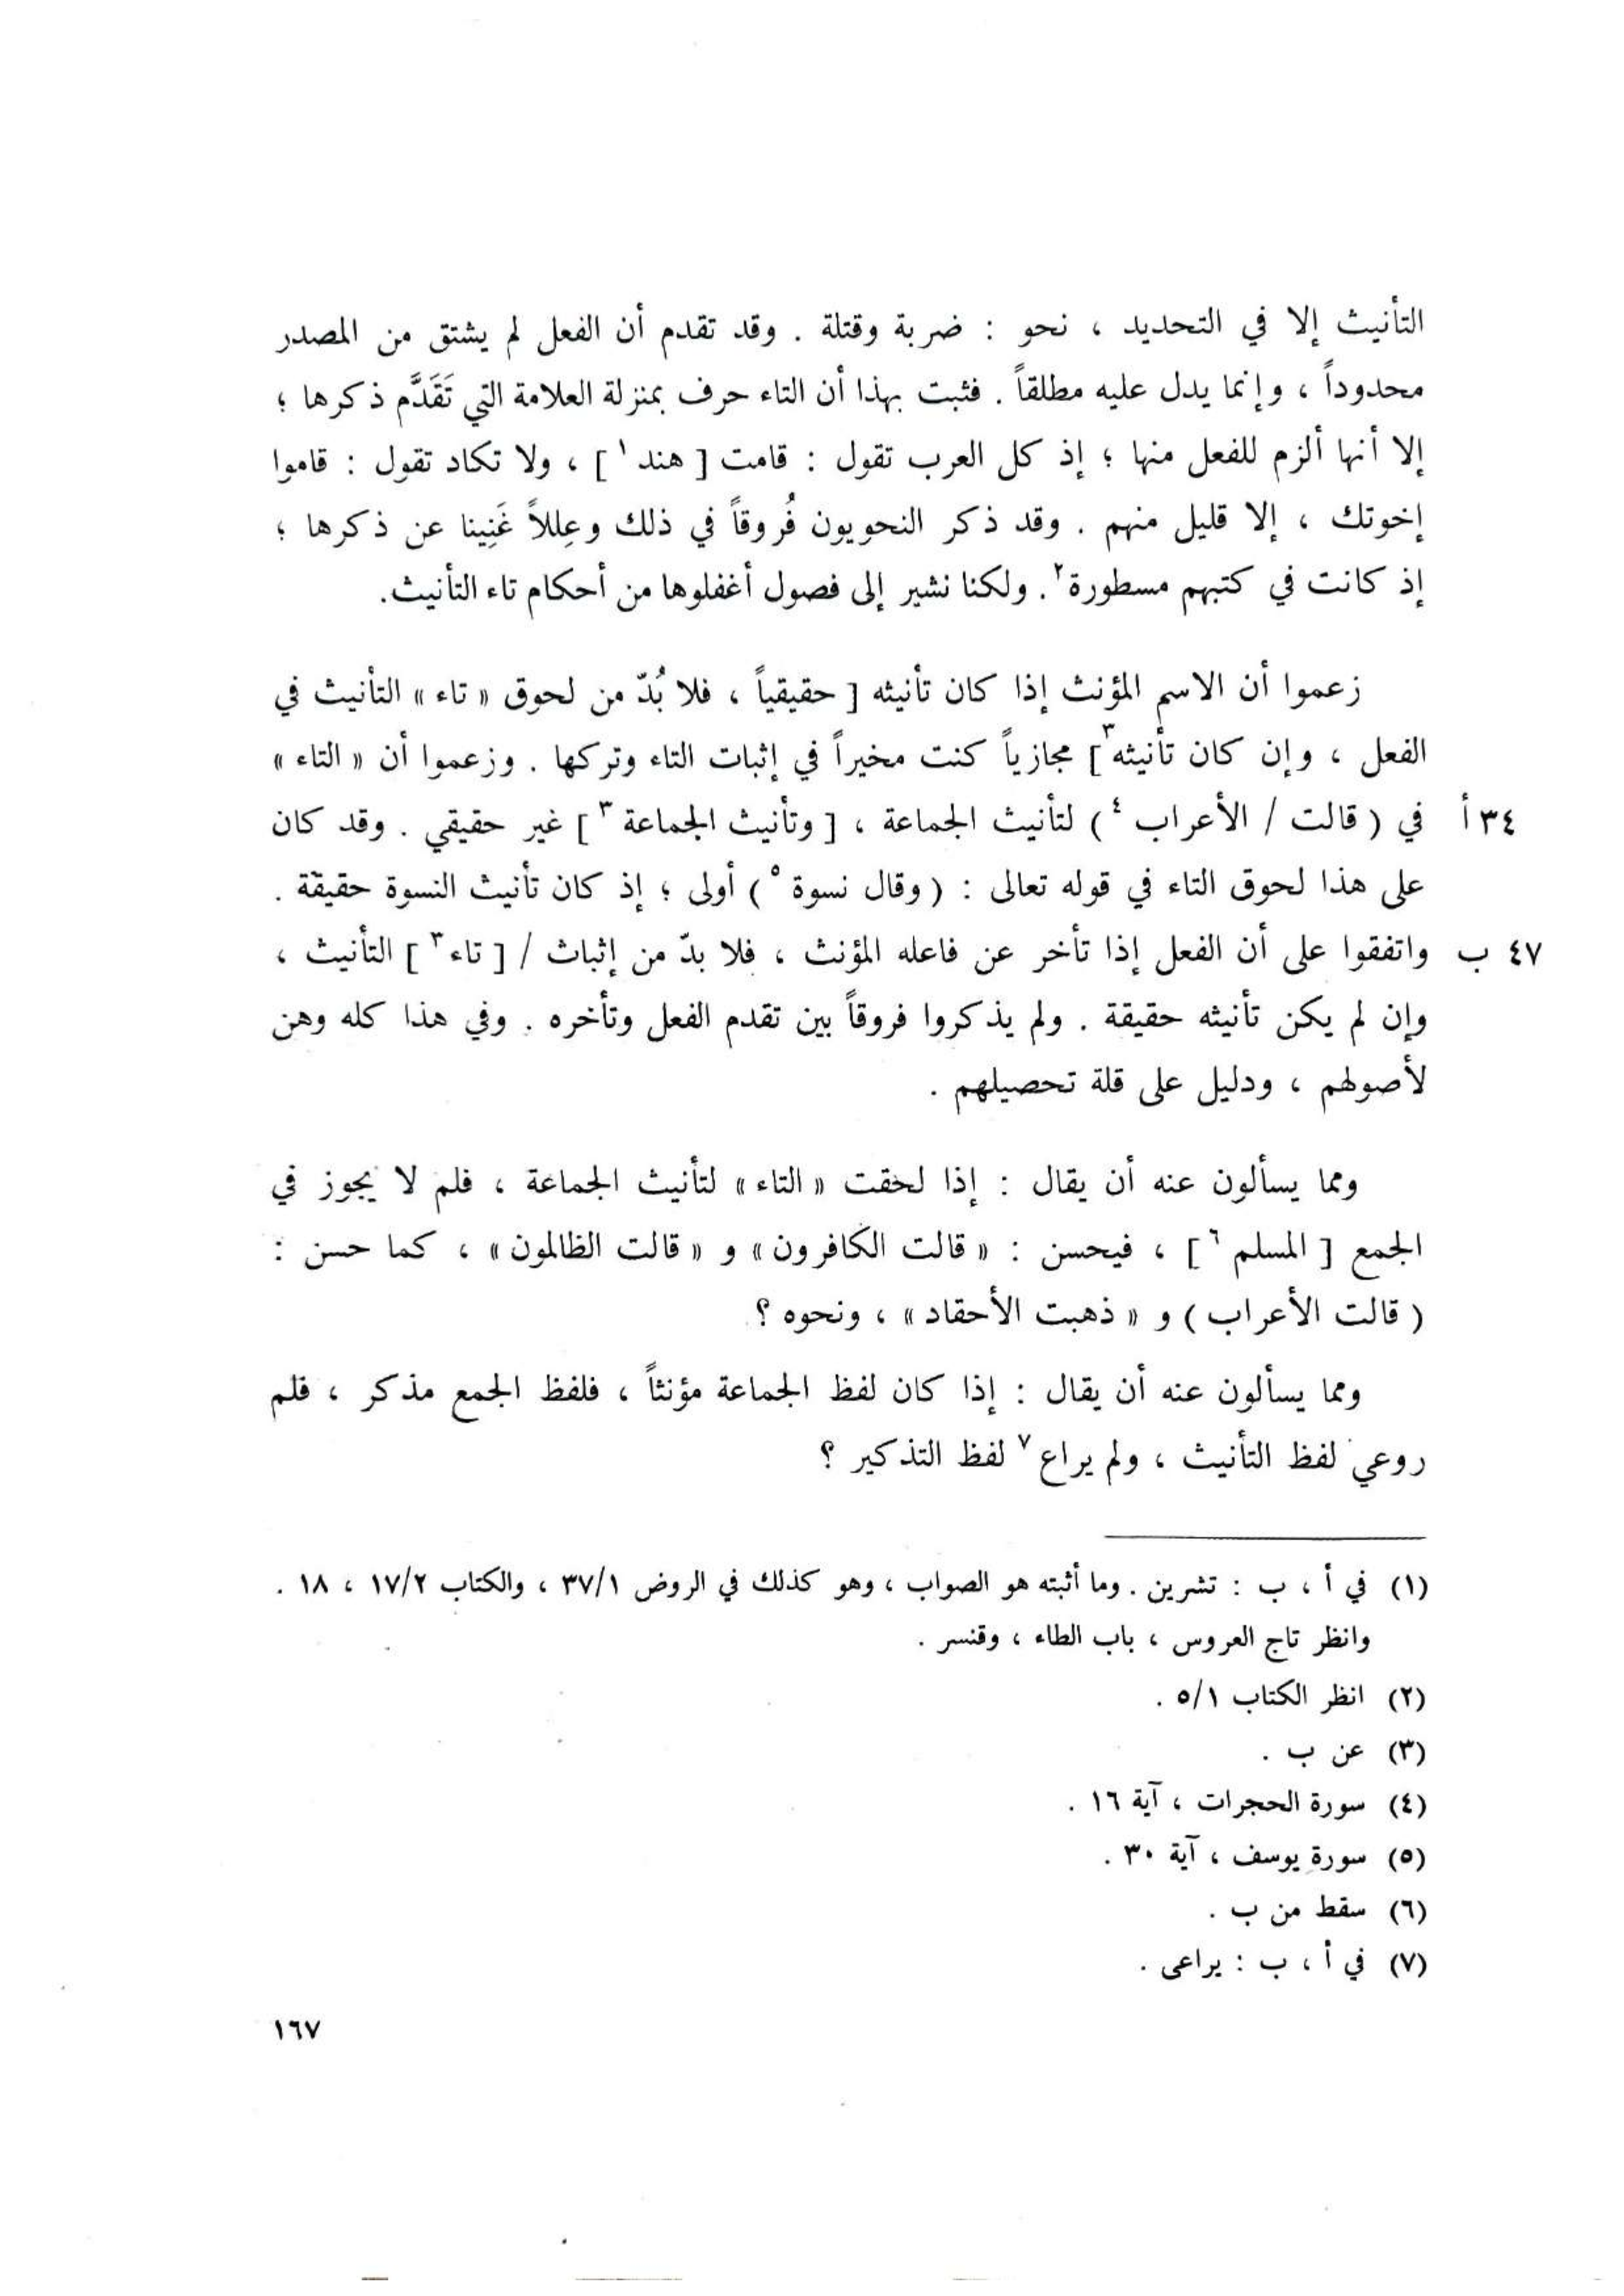 التأنيث إلا في التحديد ، نحو : ضربة وقتلة . وقد تقدم أن الفعل لم يشتق من المصدر
محدوداً ، وإنما يدل عليه مطلقاً . فثبت بهذا أن التاء حرف بمنزلة العلامة التي تَقَدَّم ذكرها ؛
إلا أنها ألزم للفعل منها ؛ إذ كل العرب تقول : قامت [ هند ١ ] ، ولا تكاد تقول : قاموا
إخوتك ، إلا قليل منهم . وقد ذكر النحويون فُروقاً في ذلك وعِللاً غَنِينا عن ذكرها ؛
إذ كانت في كتبهم مسطورة ٢ . ولكنا نشير إلى فصول أغفلوها من أحكام تاء التأنيث.
زعموا أن الاسم المؤنث إذا كان تأنيثه [ حقيقياً ، فلا بُدّ من لحوق « تاء » التأنيث في
الفعل ، وإن كان تأنيثه ٣ ] مجازياً كنت مخيراً في إثبات التاء وتركها . وزعموا أن « التاء »
٣٤ أ في ( قالت / الأعراب ٤ ) لتأنيث الجماعة ، [ وتأنيث الجماعة ٣ ] غير حقيقي . وقد كان
على هذا لحوق التاء في قوله تعالى : ( وقال نسوة ٥ ) أولى ؛ إذ كان تأنيث النسوة حقيقة .
٤٧ ب واتفقوا على أن الفعل إذا تأخر عن فاعله المؤنث ، فلا بدّ من إثبات / [ تاء ٣ ] التأنيث ،
وإن لم يكن تأنيثه حقيقة . ولم يذكروا فروقاً بين تقدم الفعل وتأخره . وفي هذا كله وهن
لأصولهم ، ودليل على قلة تحصيلهم .
ومما يسألون عنه أن يقال : إذا لحقت « التاء » لتأنيث الجماعة ، فلم لا يجوز في
الجمع [ المسلم ٦ ] ، فيحسن : « قالت الكافرون » و « قالت الظالمون » ، كما حسن :
( قالت الأعراب ) و « ذهبت الأحقاد » ، ونحوه ؟
ومما يسألون عنه أن يقال : إذا كان لفظ الجماعة مؤنثاً ، فلفظ الجمع مذكر ، فلم
روعي لفظ التأنيث ، ولم يراع ٧ لفظ التذكير ؟
(١) في أ ، ب : تشرين . وما أثبته هو الصواب ، وهو كذلك في الروض ٣٧/١ ، والكتاب ١٧/٢ ، ١٨ .
وانظر تاج العروس ، باب الطاء ، وقنسر .
(٢) انظر الكتاب ٥/١ .
(٣) عن ب .
(٤) سورة الحجرات ، آية ١٦ .
(٥) سورة يوسف ، آية ٣٠ .
(٦) سقط من ب .
(٧) في أ ، ب : يراعى .
١٦٧